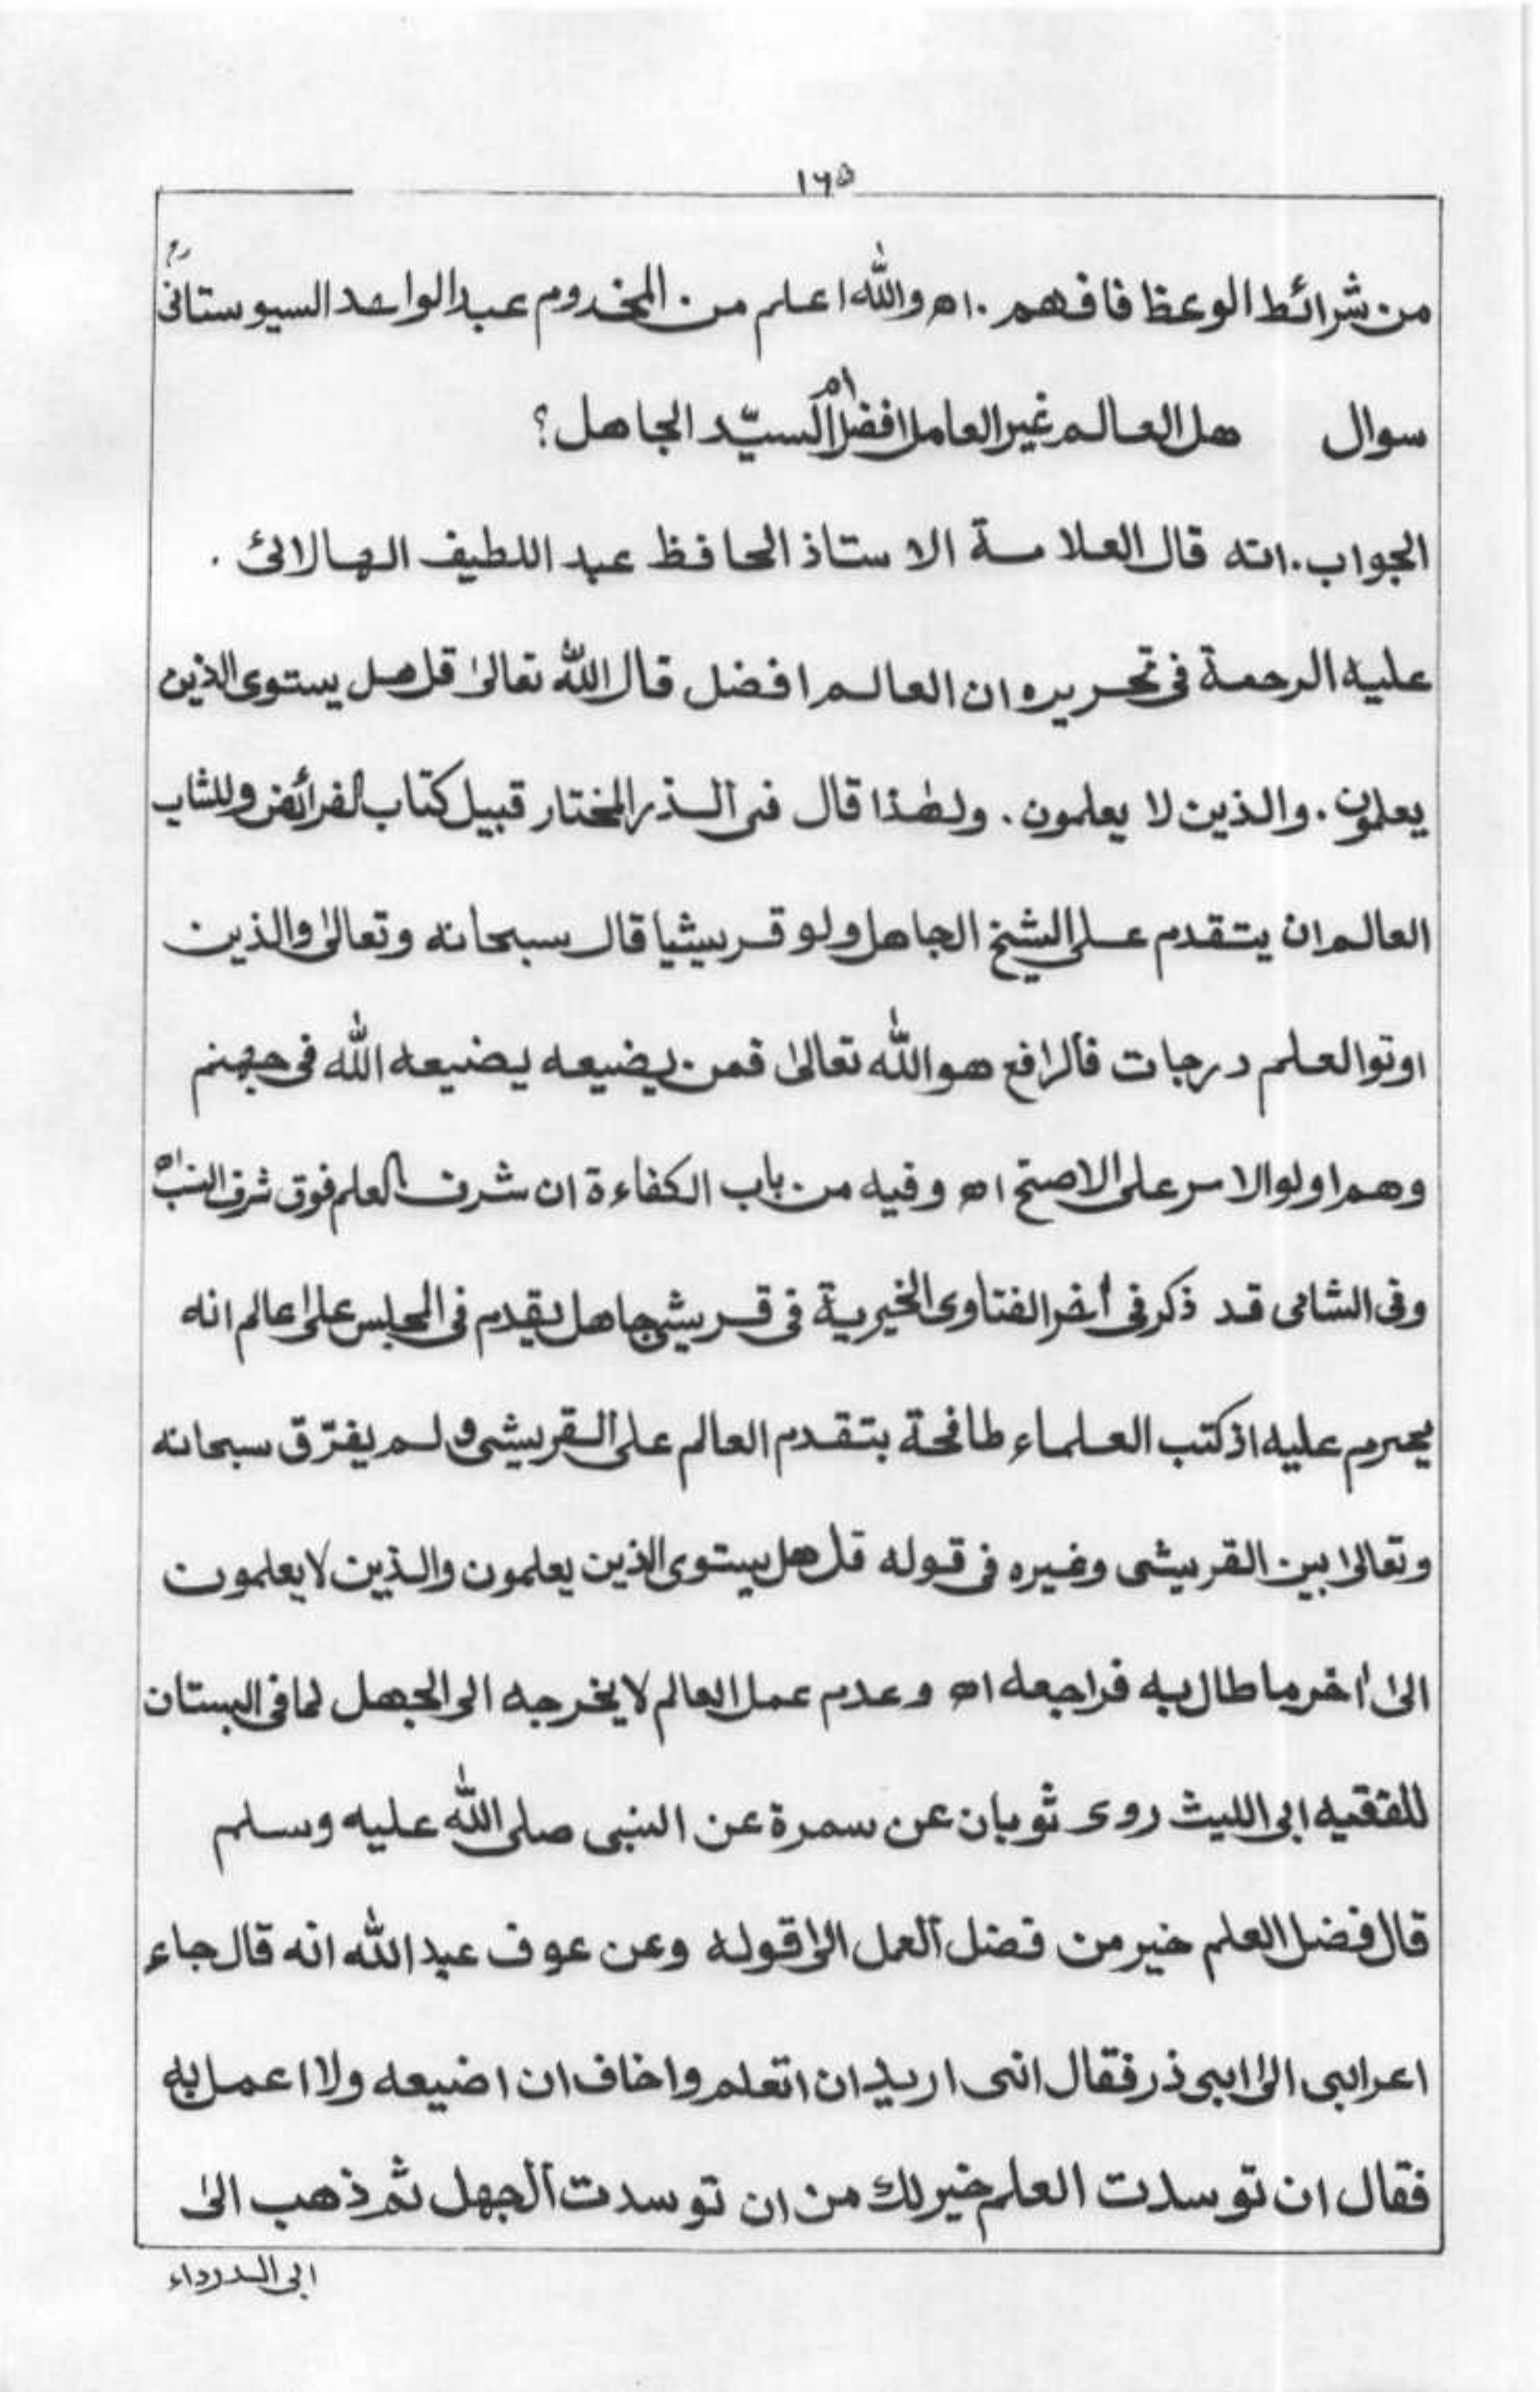 ١٦٥
من شرائط الوعظ فافهم . اه والله اعلم من المخدوم عبد الواحد السيوستانیؒ
سوال هل العالم غير العامل افضل ام السيّد الجاهل؟
الجواب . انه قال العلامة الاستاذ الحافظ عبد اللطيف الهالائى .
عليه الرحمة فى تحريره ان العالم افضل قال الله تعالىٰ قل هل يستوى الذين
يعلمون . والذين لا يعلمون . ولهٰذا قال فى الذر المختار قبيل كتاب الفرائض وللشاب
العالم ان يتقدم على الشيخ الجاهل ولو قريشيا قال سبحانه وتعالىٰ والذين
اوتوا العلم درجات فالرافع هو الله تعالىٰ فمن يضيعه يضيعه الله فى جهنم
وهم اولوا الامر على الاصح اه وفيه من باب الكفاءة ان شرف العلم فوق شرف النسب اه
وفى الشامى قد ذكر فى اٰخر الفتاوى الخيرية فى قريشى جاهل يقدم فى المجلس على عالم انه
يحرم عليه اذ كتب العلماء طافحة بتقدم العالم على القريشى و لم يفرّق سبحانه
وتعالىٰ بين القريشى وغيره فى قوله قل هل يستوى الذين يعلمون والذين لا يعلمون
الىٰ اٰخر ما طال به فراجعه اه وعدم عمل العالم لا يخرجه الى الجهل لما فى البستان
للفقيه ابى الليث روى ثوبان عن سمرة عن النبى صلى الله عليه وسلم
قال فضل العلم خير من فضل العمل الىٰ قوله وعن عوف عبد الله انه قال جاء
اعرابى الىٰ ابى ذر فقال انى اريد ان اتعلم واخاف ان اضيعه ولا اعمل به
فقال ان توسدت العلم خير لك من ان توسدت الجهل ثم ذهب الىٰ
ابى الدرداء